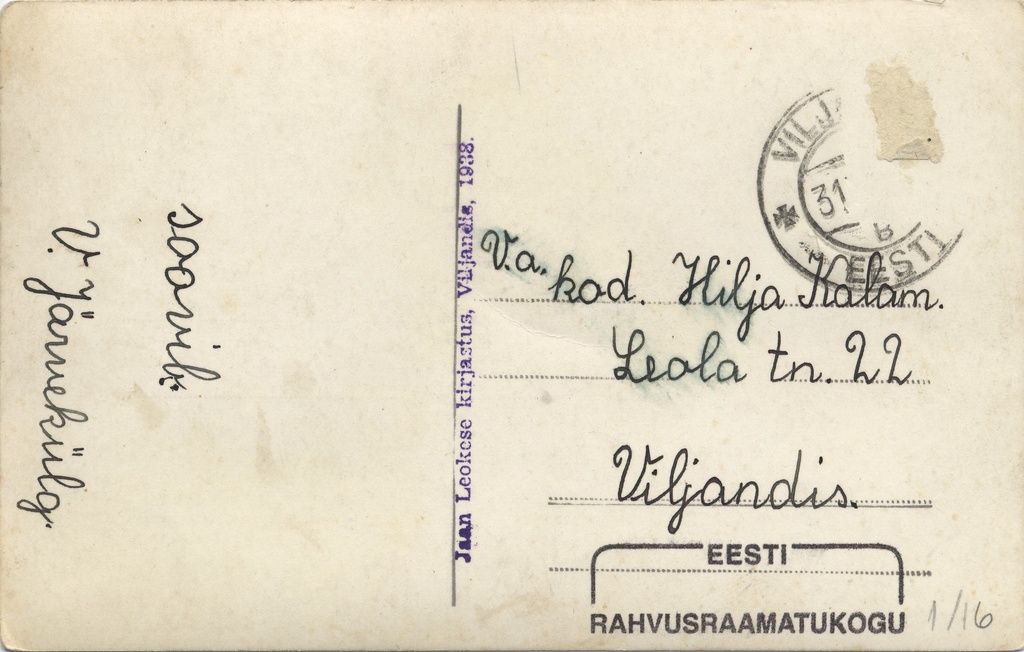 soovib:
V. Järvekülg.
Jaan Leokese kirjastus, Viljandis, 1938.
VILJA
31
B
EESTI
V.a. kod. Hilja Kalam.
Leola tn. 22
Viljandis.
EESTI
RAHVUSRAAMATUKOGU
1/16